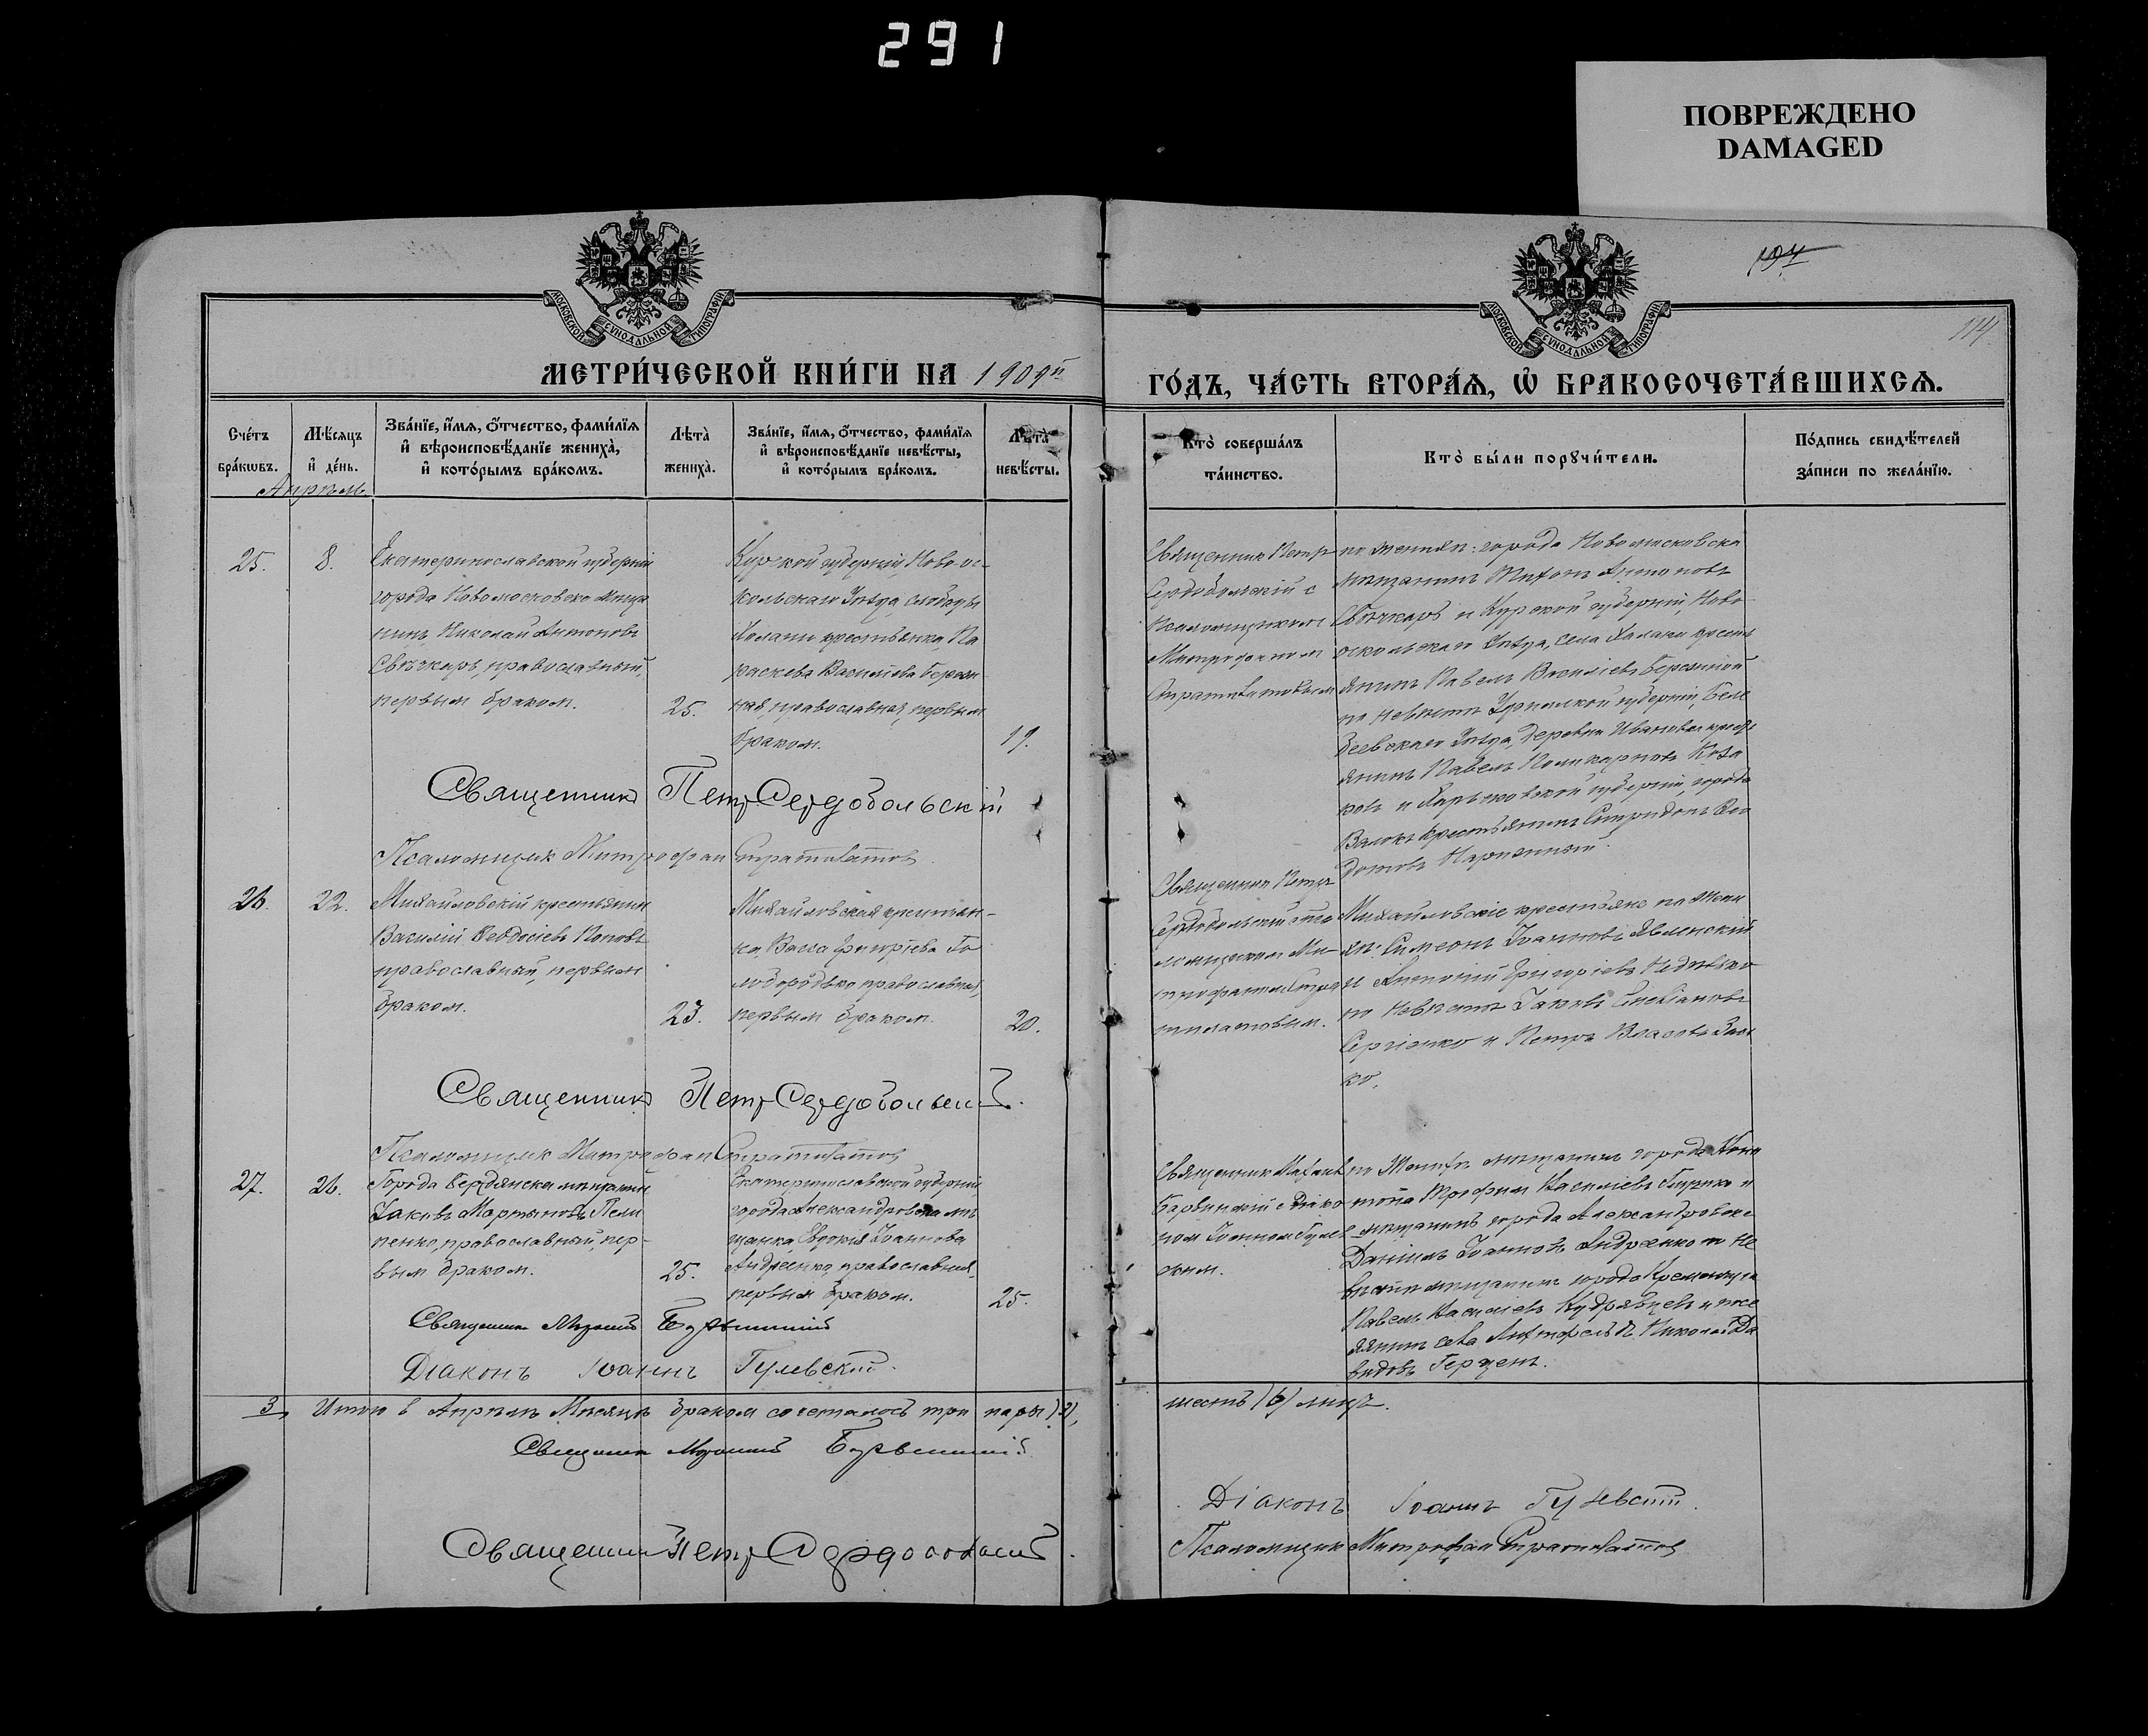 291
ПОВРЕЖДЕНО
DAMAGED
194
114
МОСКОВСКОЙ СѴНОДАЛЬНОЙ ТИПОГРАФІИ
МОСКОВСКОЙ СѴНОДАЛЬНОЙ ТИПОГРАФІИ
МЕТРИ́ЧЕСКОЙ КНИ́ГИ НА 1909й
ГО́ДЪ, ЧА́СТЬ ВТОРА́Ѧ, Ѡ҆ БРАКОСОЧЕТА́ВШИХСѦ.
Сче́тъ бра́кѡвъ.
Мѣ́сяцъ и҆ де́нь.
Зва́нїе, и҆́мѧ, ѻ҆́тчество, фами́лїѧ
и҆ вѣроисповѣ́данїе жениха̀,
и҆ кото́рымъ бра́комъ.
Лѣта̀ жениха̀.
Зва́нїе, и҆́мѧ, ѻ҆́тчество, фами́лїѧ
и҆ вѣроисповѣ́данїе невѣ́сты,
и҆ кото́рымъ бра́комъ.
Лѣта̀ невѣ́сты.
Кто̀ соверша́лъ
та́инство.
Кто̀ бы́ли порꙋчи́тели.
По́дпись свидѣ́телей
за́писи по жела́нїю.
Апрѣль
25.
8.
Екатеринославской губерніи
города Новомосковска мѣща
нинъ, Николай Антоновъ
Свѣчкарь, православный,
первым браком.
25.
Курской губерніи, Ново-ос-
кольскаго Уѣзда, слободы
Халани крестьянка, Па
раскева Василіева Берез
ная, православная, первым
браком.
19.
Священник Петр
Сердобольскій с
Псаломщиком
Митрофаном
Стратилатовым
по женихѣ: города Новомосковска
мѣщанинъ Тихонъ Антоновъ
Свѣчкарь и Курской губерніи, Ново
оскольскаго Уѣзда, села Халани кресть
янинъ Павелъ Василіевъ Березной
по невѣстѣ
Уѣзда, деревни Ивановки кресть
янинъ Павелъ Поликарповъ Коза
ковъ и Харьковской губерніи, города
Валокъ крестьянинъ Спиридонъ Ѳео
дотовъ
Священникъ Петр Сердобольскій
Псаломщик Митрофан Стратилатов
26.
22.
Михайловскій крестьянин
Василій Ѳеодосіевъ Поповъ
православный, первым
браком.
23.
Михайловская крестьян-
ка, Васса Григоріева Го
лобородько православная,
первым браком.
20.
Священник Петр
Сердобольскій с Пса
ломщиком Ми-
трофаном Стра
тилатовым.
Михайловскіе крестьяне по жени
хѣ: Симеонъ Іоанновъ Явленскій
и Григоріевъ
по невѣстѣ Іаковъ Стефановъ
Сергіенко и Петръ Власовъ
ко.
Священникъ Петр Сердобольскій.
Псаломщик Митрофан Стратилатов
27.
26.
Города Бердянска мѣщанин
Іаковъ Мартыновъ Пели
пенко, православный, пер-
вым браком.
25.
Екатеринославской губерніи
города Александровска мѣ
щанка, Евдокія Іоаннова
Андреенко, православная,
первым браком.
25.
Священник
с Діако
ном Іоанном Гулев
ским.
по Женихѣ мѣщанинъ города Коно
топа Трофим Василіевъ и
мѣщанинъ города Александровска
Даніилъ Іоанновъ Андреенко по не
вѣстѣ мѣщанинъ города Кременчуга
Павелъ Василіевъ Кудрявцевъ и посе
лянинъ села Николай Да
видовъ Герцен.
Священник
Діаконъ Іоаннъ Гулевскій.
3
Итого в Апрѣлѣ Мѣсяцѣ браком сочеталось три пары (3),
шесть (6) лицъ.
Священник
Діаконъ Іоаннъ Гулевскій.
Священник Петр Сердобольскій.
Псаломщик Митрофан Стратилатов